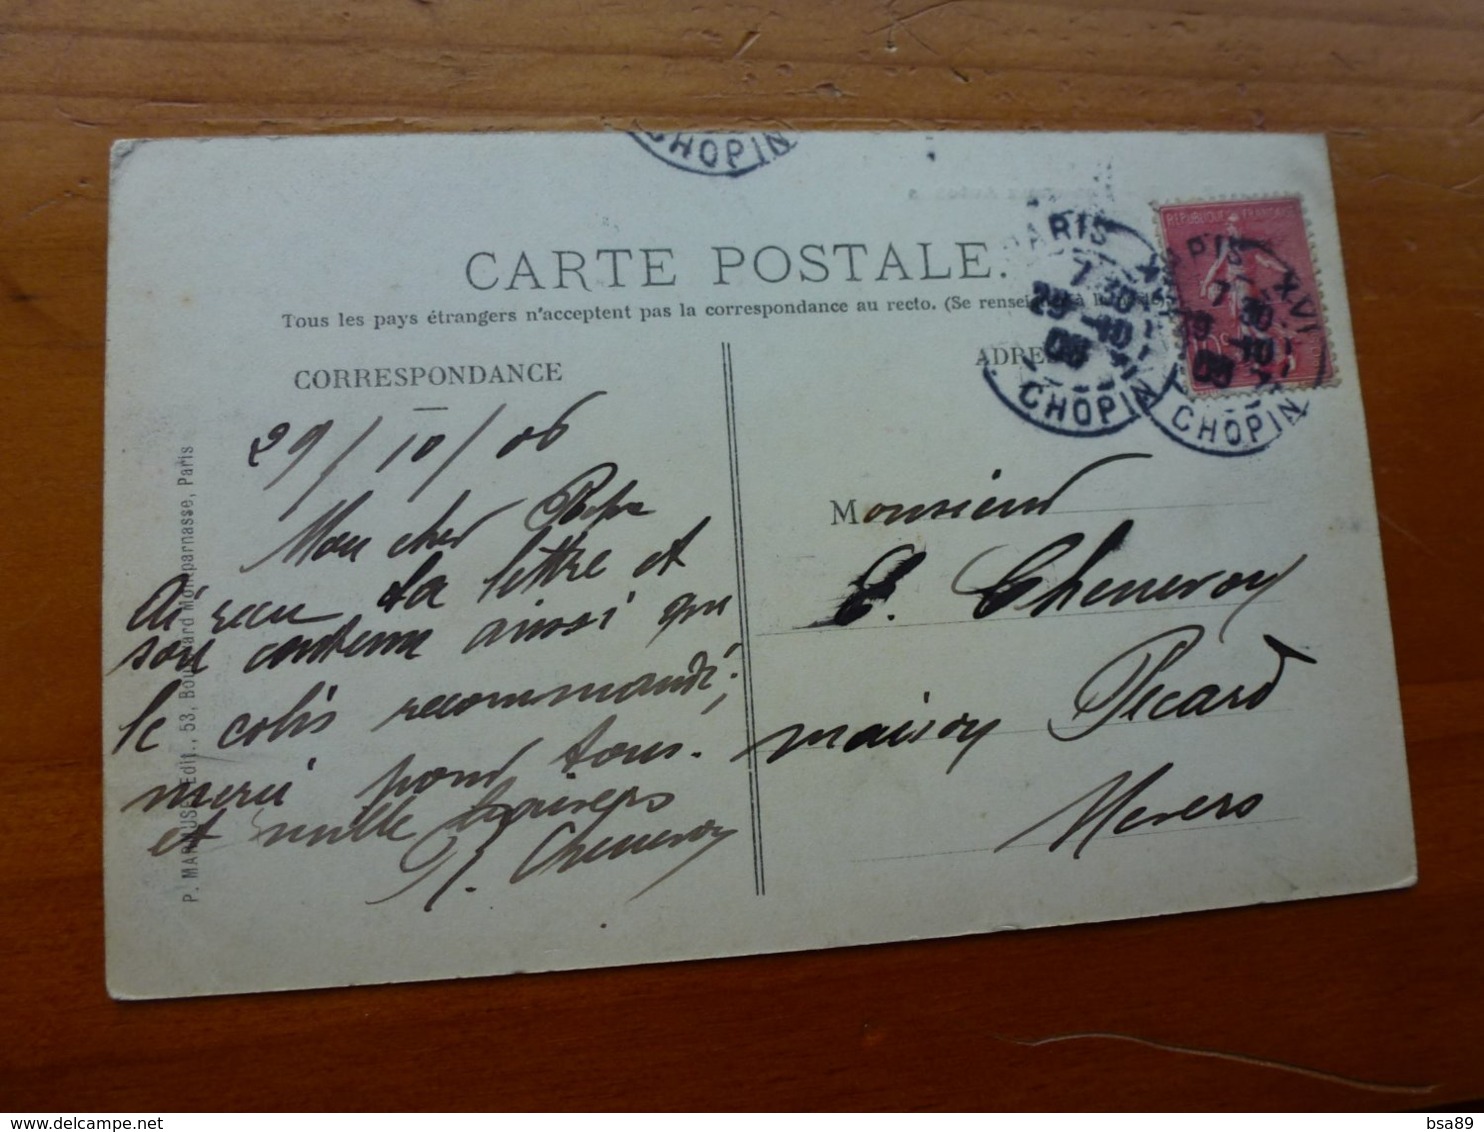 CHOPIN
CARTE POSTALE.
Tous les pays étrangers n'acceptent pas la correspondance au recto. (Se renseigner à la
CORRESPONDANCE
ADRE
REPUBLIQUE FRANÇAISE
PARIS XVI
7 30
29 -10
06
CHOPIN
PARIS XVI
7 30
29 -10
06
CHOPIN
29/10/06
Mon cher Papa
ai recu ta lettre et
son contenu ainsi que
le colis recommandé;
merci pour tous.
et mille baisers
Chenevoy
Monsieur
E. Chenevoy
maison Picard
Nevers
P. MARMUSE, Edit., 53, Boulevard Montparnasse, Paris
delcampe.net
bsa89